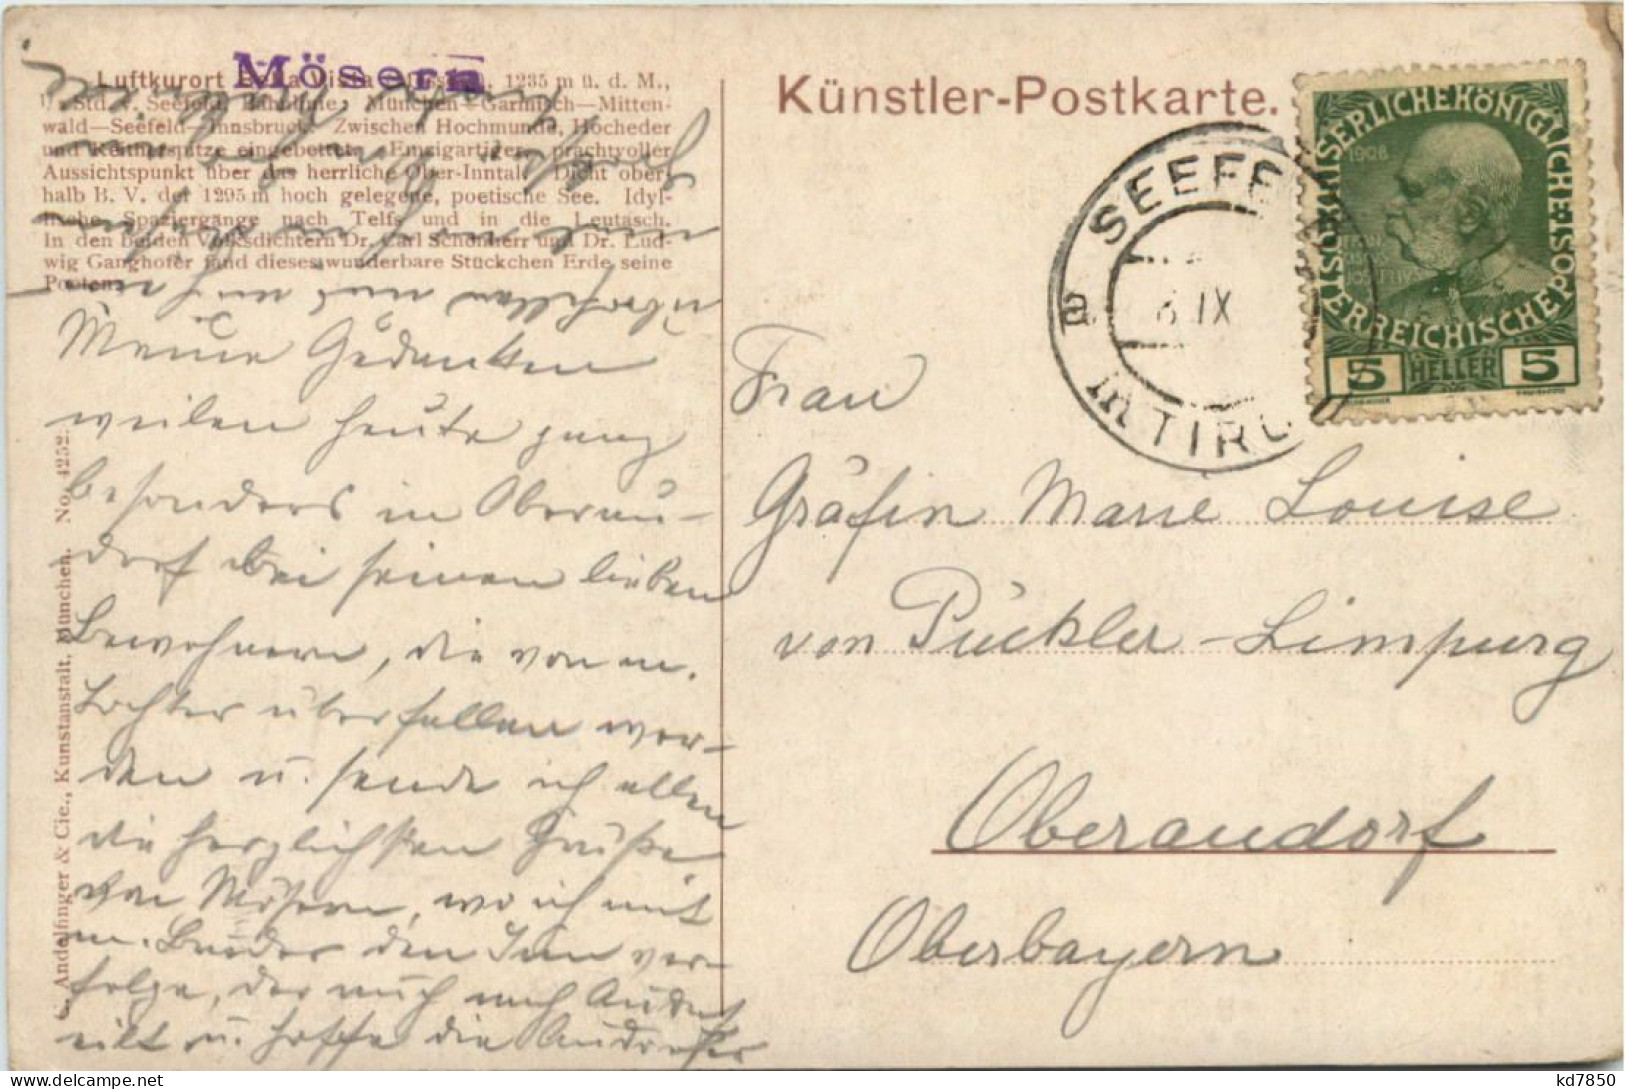 Mösern
Luftkurort Bella Vista Mösern, 1235 m ü. d. M.,
Std. v. Seefeld, Bahnlinie: München—Garmisch—Mitten-
wald—Seefeld—Innsbruck. Zwischen Hochmunde, Hocheder
und eingebettet. Einzigartiger, prachtvoller
Aussichtspunkt über das herrliche Ober-Inntal. Dicht ober-
halb B. V. der 1295 m hoch gelegene, poetische See. Idyl-
lische Spaziergänge nach Telfs und in die Leutasch.
In den beiden Volksdichtern Dr. Carl Schönherr und Dr. Lud-
wig Ganghofer fand dieses wunderbare Stückchen Erde seine
Poeten.
Meine Gedanken
weilen heute ganz
besonders in Oberau-
dorf bei seinen lieben
Bewohnern, die von m.
Tochter überfallen wer-
den u. sende ich allen
die herzlichsten Grüße
von Mösern, wo ich mit
m. Bruder den Inn ver-
folge, der auch nach Audorf
eilt u. hoffe die Audorfer
C. Andelfinger & Cie., Kunstanstalt, München. No. 4252.
Künstler-Postkarte.
KAISERLICHE KÖNIGLICHE
ÖSTERREICHISCHE POST
1908
5 HELLER 5
SEEFE
IX
a
in TIRO
Frau
Gräfin Marie Louise
von Pückler-Limpurg
Oberaudorf
Oberbayern
kd7850